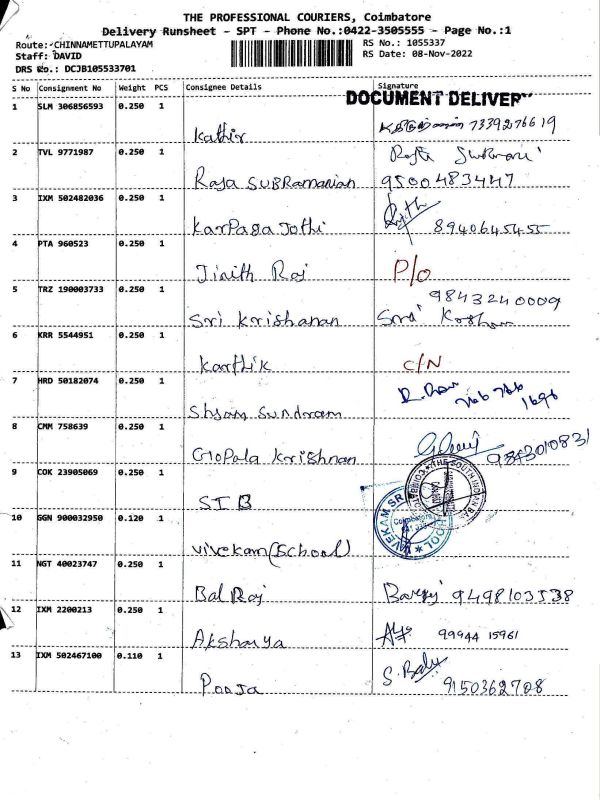 THE PROFESSIONAL COURIERS, Coimbatore
Delivery Runsheet - SPT - Phone No.:0422-3505555 - Page No.:1
Route: CHINNAMETTUPALAYAM RS No.: 1055337
Staff: DAVID RS Date: 08-Nov-2022
DRS No.: DCJB105533701
S No Consignment No Weight PCS Consignee Details Signature
DOCUMENT DELIVERY
1 SLM 306856593 0.250 1
Kathir 7339276619
2 TVL 9771987 0.250 1
Raja SUBRamanian 9500483447
3 IXM 502482036 0.250 1
KarPagaJothi 8940645455
4 PTA 960523 0.250 1
Jinith Raj P/o
5 TRZ 190003733 0.250 1 9843240009
Sri Krishanan
6 KRR 5544951 0.250 1
Karthik C/N
7 HRD 50182074 0.250 1
Shyam Sundram 766 766 1696
8 CMM 758639 0.250 1
Gopala Krishnan 9843010831
9 COK 23905069 0.250 1
SIB
THE SOUTH INDIAN BANK
10 GGN 900032950 0.120 1
Vivekam (School)
Coimbatore
11 NGT 40023747 0.250 1
Bal Raj 9498103538
12 IXM 2200213 0.250 1
Aksharya 99944 15961
13 IXM 502467100 0.110 1
Pooja S. Balu 9150362708